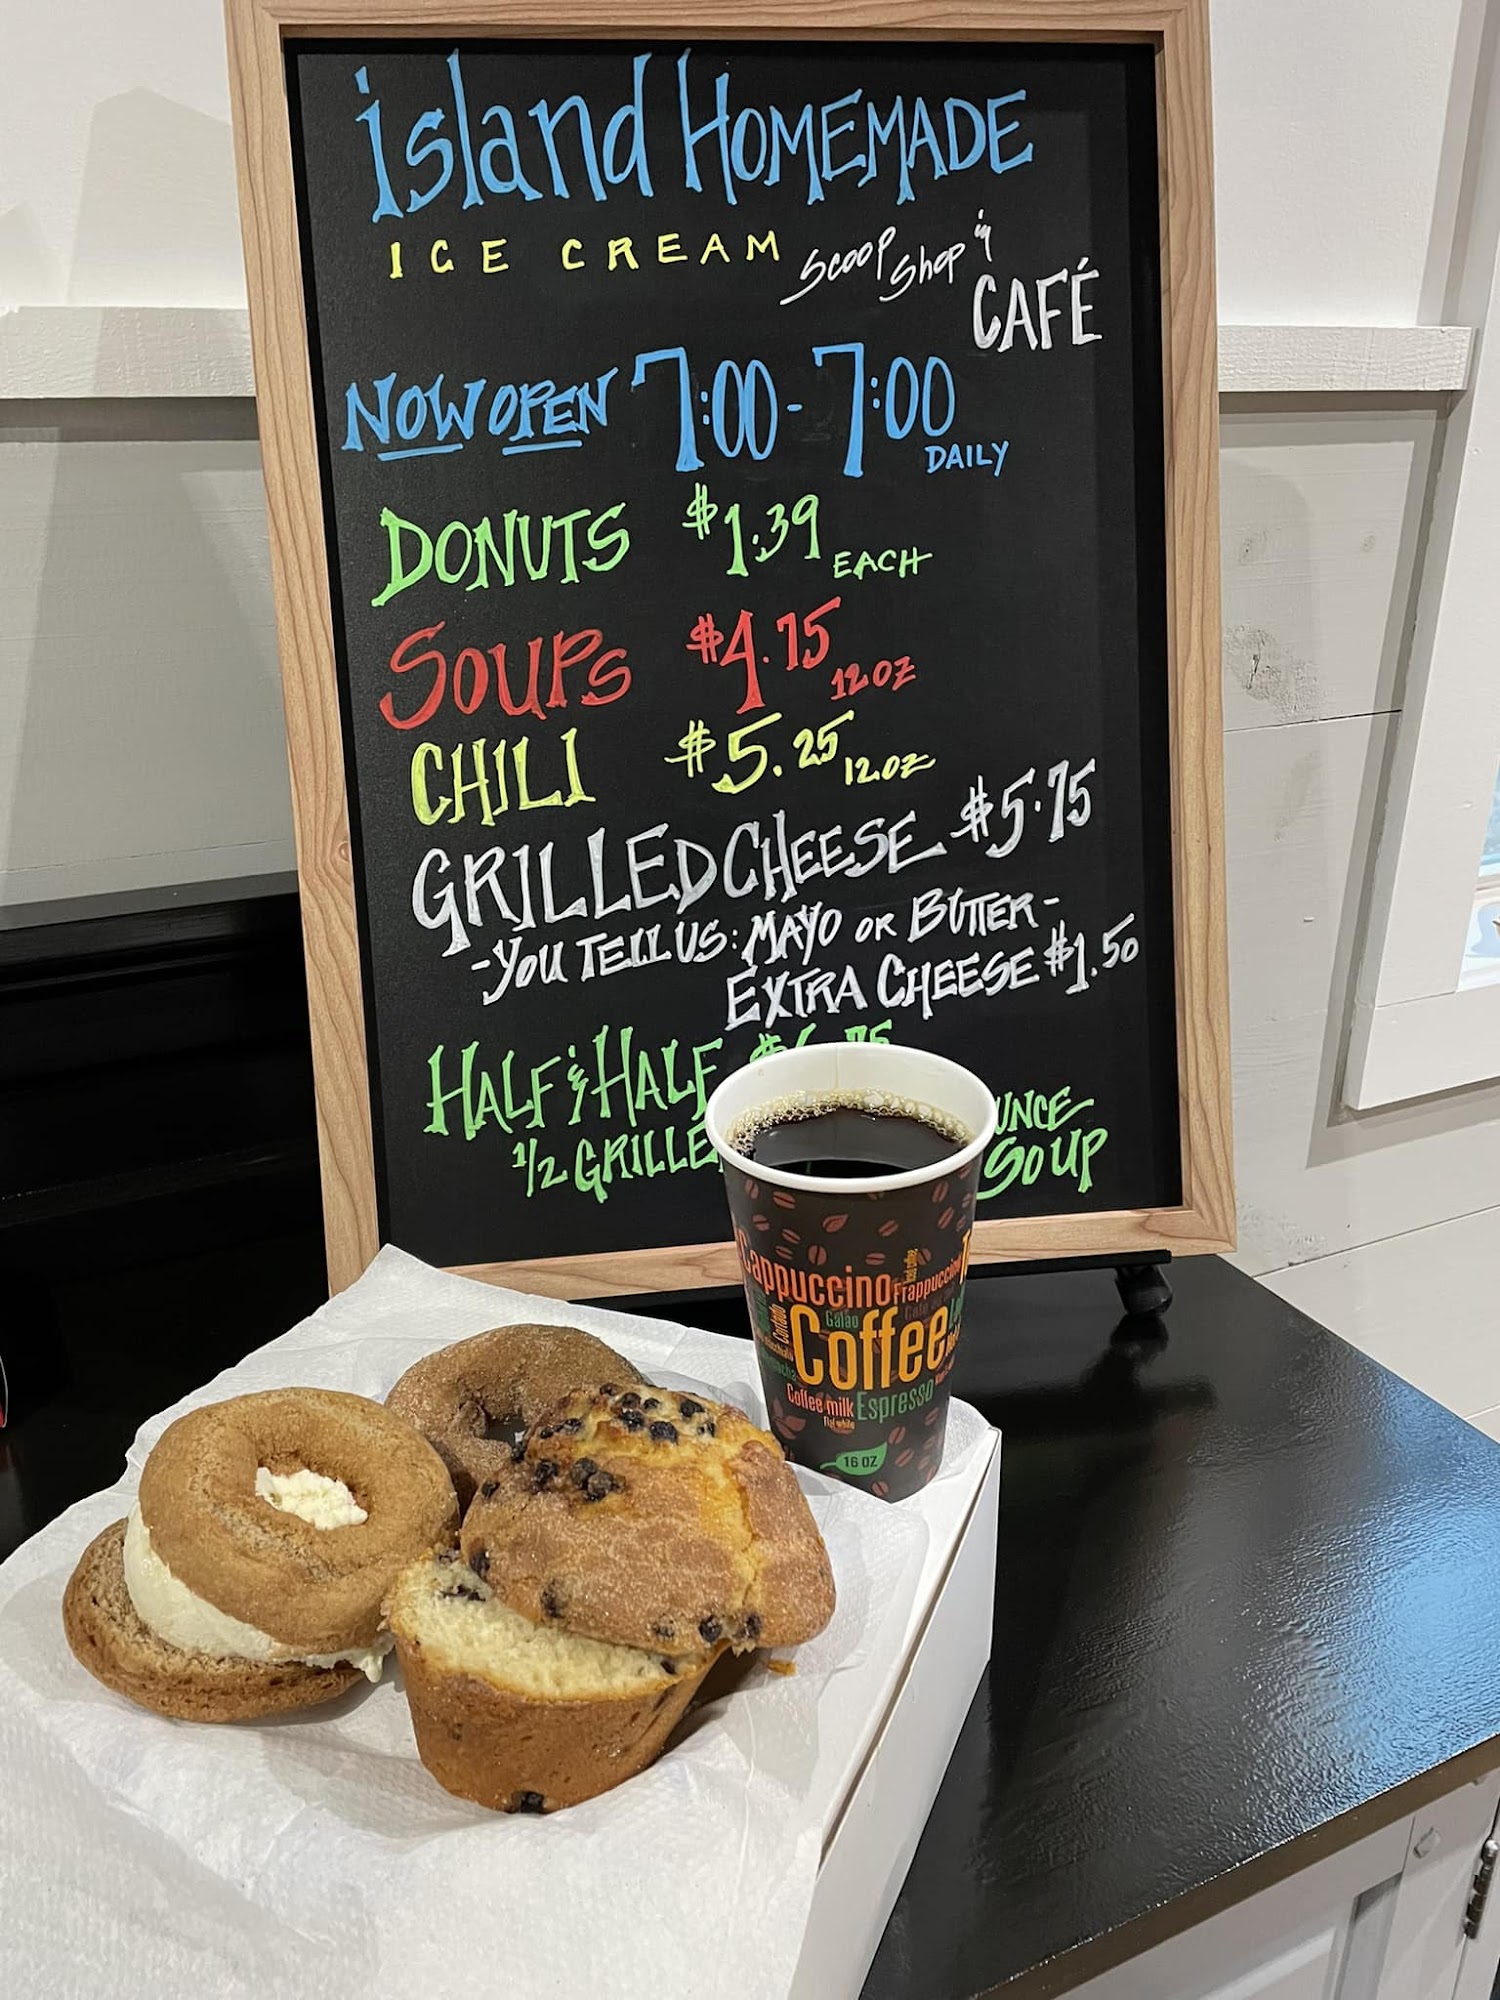 island HOMEMADE
ICE CREAM scoop shop in
CAFÉ
NOW OPEN 7:00 - 7:00
DAILY
DONUTS $1.39 EACH
SOUPS $4.75 12 OZ
CHILI $5.25 12 OZ
GRILLED CHEESE $5.75
- YOU TELL US: MAYO OR BUTTER -
EXTRA CHEESE $1.50
HALF & HALF
1/2 GRILLE
SOUP
Cappuccino Frappuccino
Galao
Cortado
Coffee
Coffee milk Espresso
Flat white
16 OZ